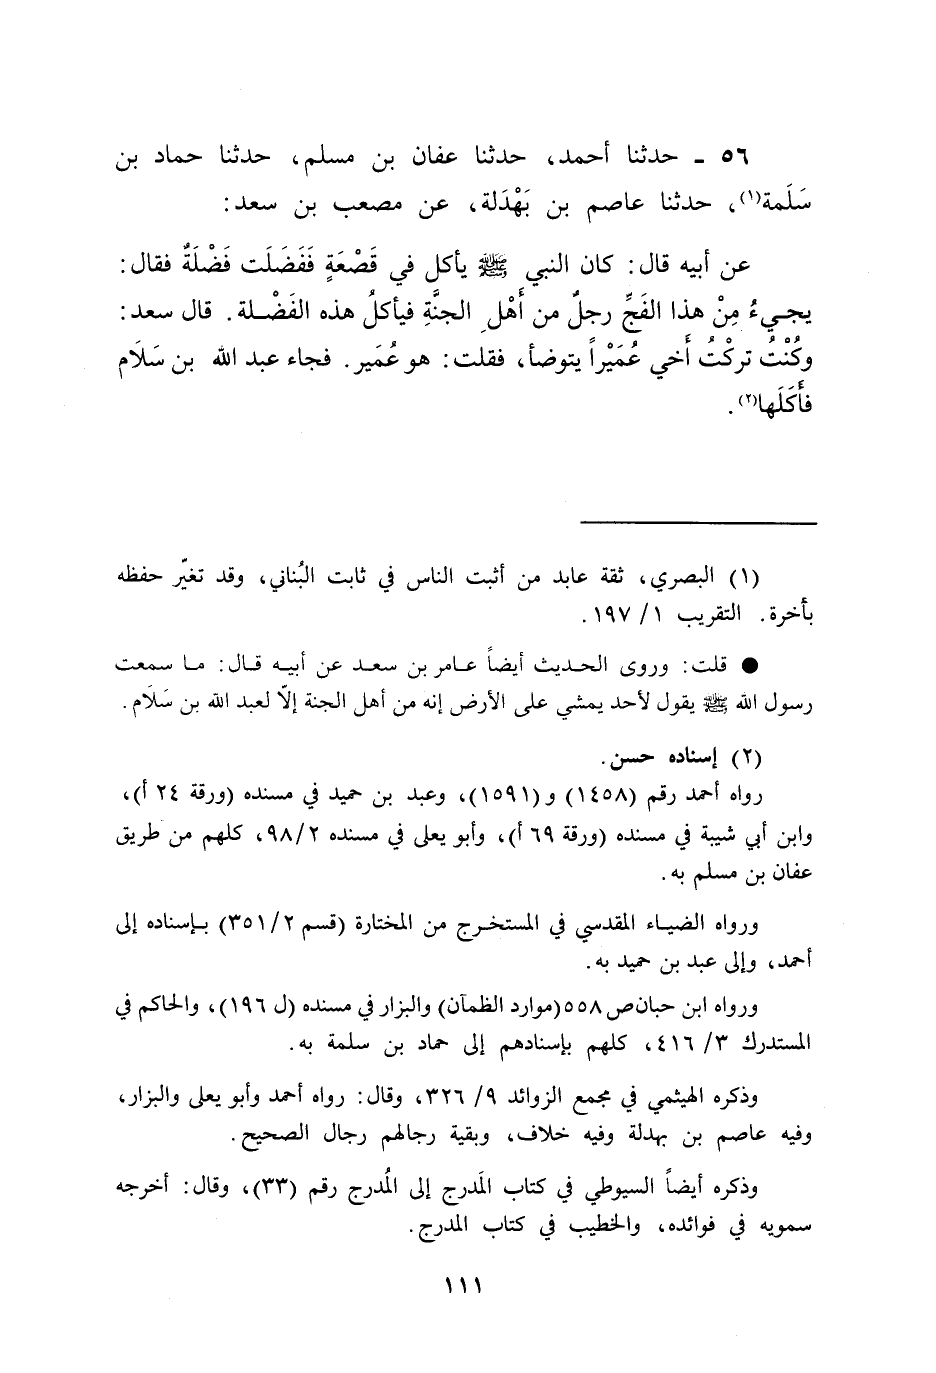 ٥٦ ـ حدثنا أحمد، حدثنا عفان بن مسلم، حدثنا حماد بن
سَلَمة(١)، حدثنا عاصم بن بَهْدَلة، عن مصعب بن سعد:
عن أبيه قال: كان النبي ﷺ يأكل في قَصْعَةٍ فَفَضَلَت فَضْلَةٌ فقال:
يجيءُ مِنْ هذا الفَجِّ رجلٌ من أَهْلِ الجنَّةِ فيأكلُ هذه الفَضْلة. قال سعد:
وكُنْتُ تركْتُ أَخي عُمَيْراً يتوضأ، فقلت: هو عُمَير. فجاء عبد الله بن سَلَام
فأَكَلَها(٢).
(١) البصري، ثقة عابد من أثبت الناس في ثابت البُناني، وقد تغيّر حفظه
بأخرة. التقريب ١/ ١٩٧.
● قلت: وروى الحديث أيضاً عامر بن سعد عن أبيه قال: ما سمعت
رسول الله ﷺ يقول لأحد يمشي على الأرض إنه من أهل الجنة إلّا لعبد الله بن سَلَام.
(٢) إسناده حسن.
رواه أحمد رقم (١٤٥٨) و(١٥٩١)، وعبد بن حميد في مسنده (ورقة ٢٤ أ)،
وابن أبي شيبة في مسنده (ورقة ٦٩ أ)، وأبو يعلى في مسنده ٩٨/٢، كلهم من طريق
عفان بن مسلم به.
ورواه الضياء المقدسي في المستخرج من المختارة (قسم ٣٥١/٢) بإسناده إلى
أحمد، وإلى عبد بن حميد به.
ورواه ابن حبان ص ٥٥٨ (موارد الظمآن) والبزار في مسنده (ل ١٩٦)، والحاكم في
المستدرك ٣/ ٤١٦، كلهم بإسنادهم إلى حماد بن سلمة به.
وذكره الهيثمي في مجمع الزوائد ٩/ ٣٢٦، وقال: رواه أحمد وأبو يعلى والبزار،
وفيه عاصم بن بهدلة وفيه خلاف، وبقية رجالهم رجال الصحيح.
وذكره أيضاً السيوطي في كتاب المَدرج إلى المُدرج رقم (٣٣)، وقال: أخرجه
سمويه في فوائده، والخطيب في كتاب المدرج.
١١١